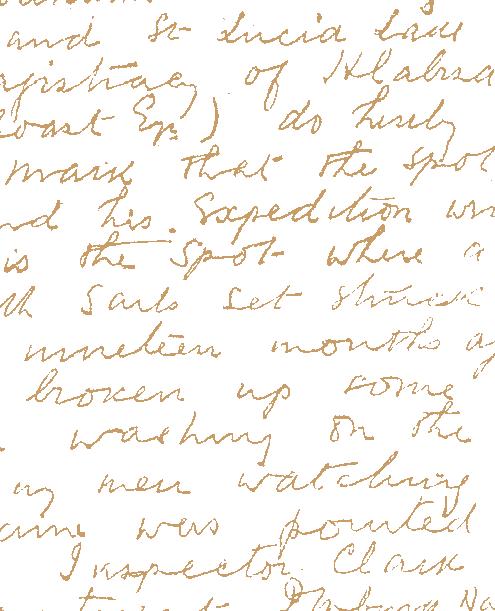 and St Lucia Lake
of Hlabisa
Coast Eqr.) do hereby
mark that the spot
and his Expedition
is the spot where a
Sails set struck
nineteen months
broken up some
washing on the
my men watching
was pointed
Inspector Clark